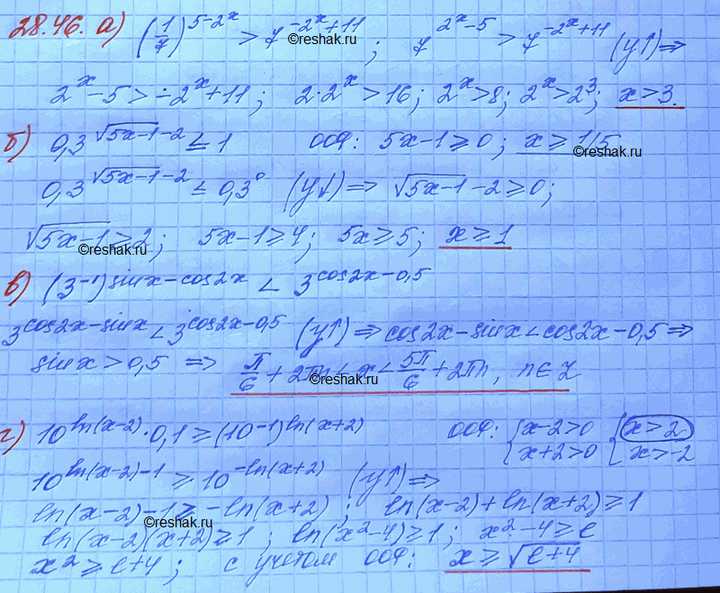 28.46. а) (1/7)^(5-2^x) > 7^(-2^x+11); 7^(2^x-5) > 7^(-2^x+11) (у↑) ⇒
©reshak.ru ©reshak.ru
2^x-5 > -2^x+11; 2·2^x > 16; 2^x > 8; 2^x > 2^3; x > 3.
б) 0,3^(√(5x-1)-2) ≤ 1 ООФ: 5x-1 ≥ 0; x ≥ 1/5
©reshak.ru
0,3^(√(5x-1)-2) ≤ 0,3^0 (у↓) ⇒ √(5x-1)-2 ≥ 0;
√(5x-1) ≥ 2; 5x-1 ≥ 4; 5x ≥ 5; x ≥ 1
©reshak.ru
в) (3^(-1))^(sinx-cos2x) < 3^(cos2x-0,5)
3^(cos2x-sinx) < 3^(cos2x-0,5) (у↑) ⇒ cos2x-sinx < cos2x-0,5 ⇒
sinx > 0,5 ⇒ π/6 + 2πn < x < 5π/6 + 2πn, n∈Z
©reshak.ru
г) 10^(ln(x-2)) · 0,1 ≥ (10^(-1))^(ln(x+2)) ООФ: {x-2>0 {x>2
x+2>0 x>-2
10^(ln(x-2)-1) ≥ 10^(-ln(x+2)) (у↑) ⇒
ln(x-2)-1 ≥ -ln(x+2); ln(x-2)+ln(x+2) ≥ 1
©reshak.ru
ln(x-2)(x+2) ≥ 1; ln(x²-4) ≥ 1; x²-4 ≥ e
x² ≥ e+4; с учетом ООФ: x ≥ √(e+4)